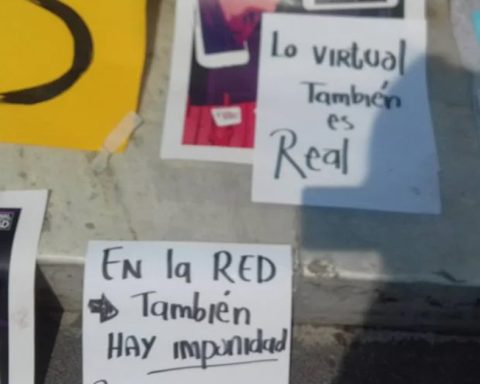 Lo VIRtual
También
es
Real
EN la RED
También
HAY impunidad